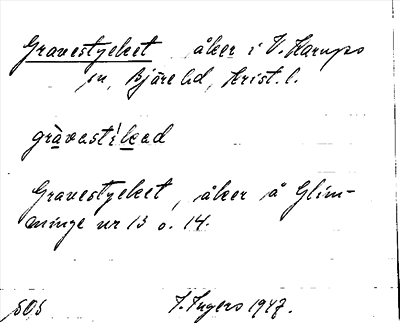 Gravestycket åker i V. Karups
sn, Bjäre hd, Krist. l.
gràvastikad
Gravestycket, åker å Glim-
minge nr 13 o. 14.
505 I. Ingers 1947.